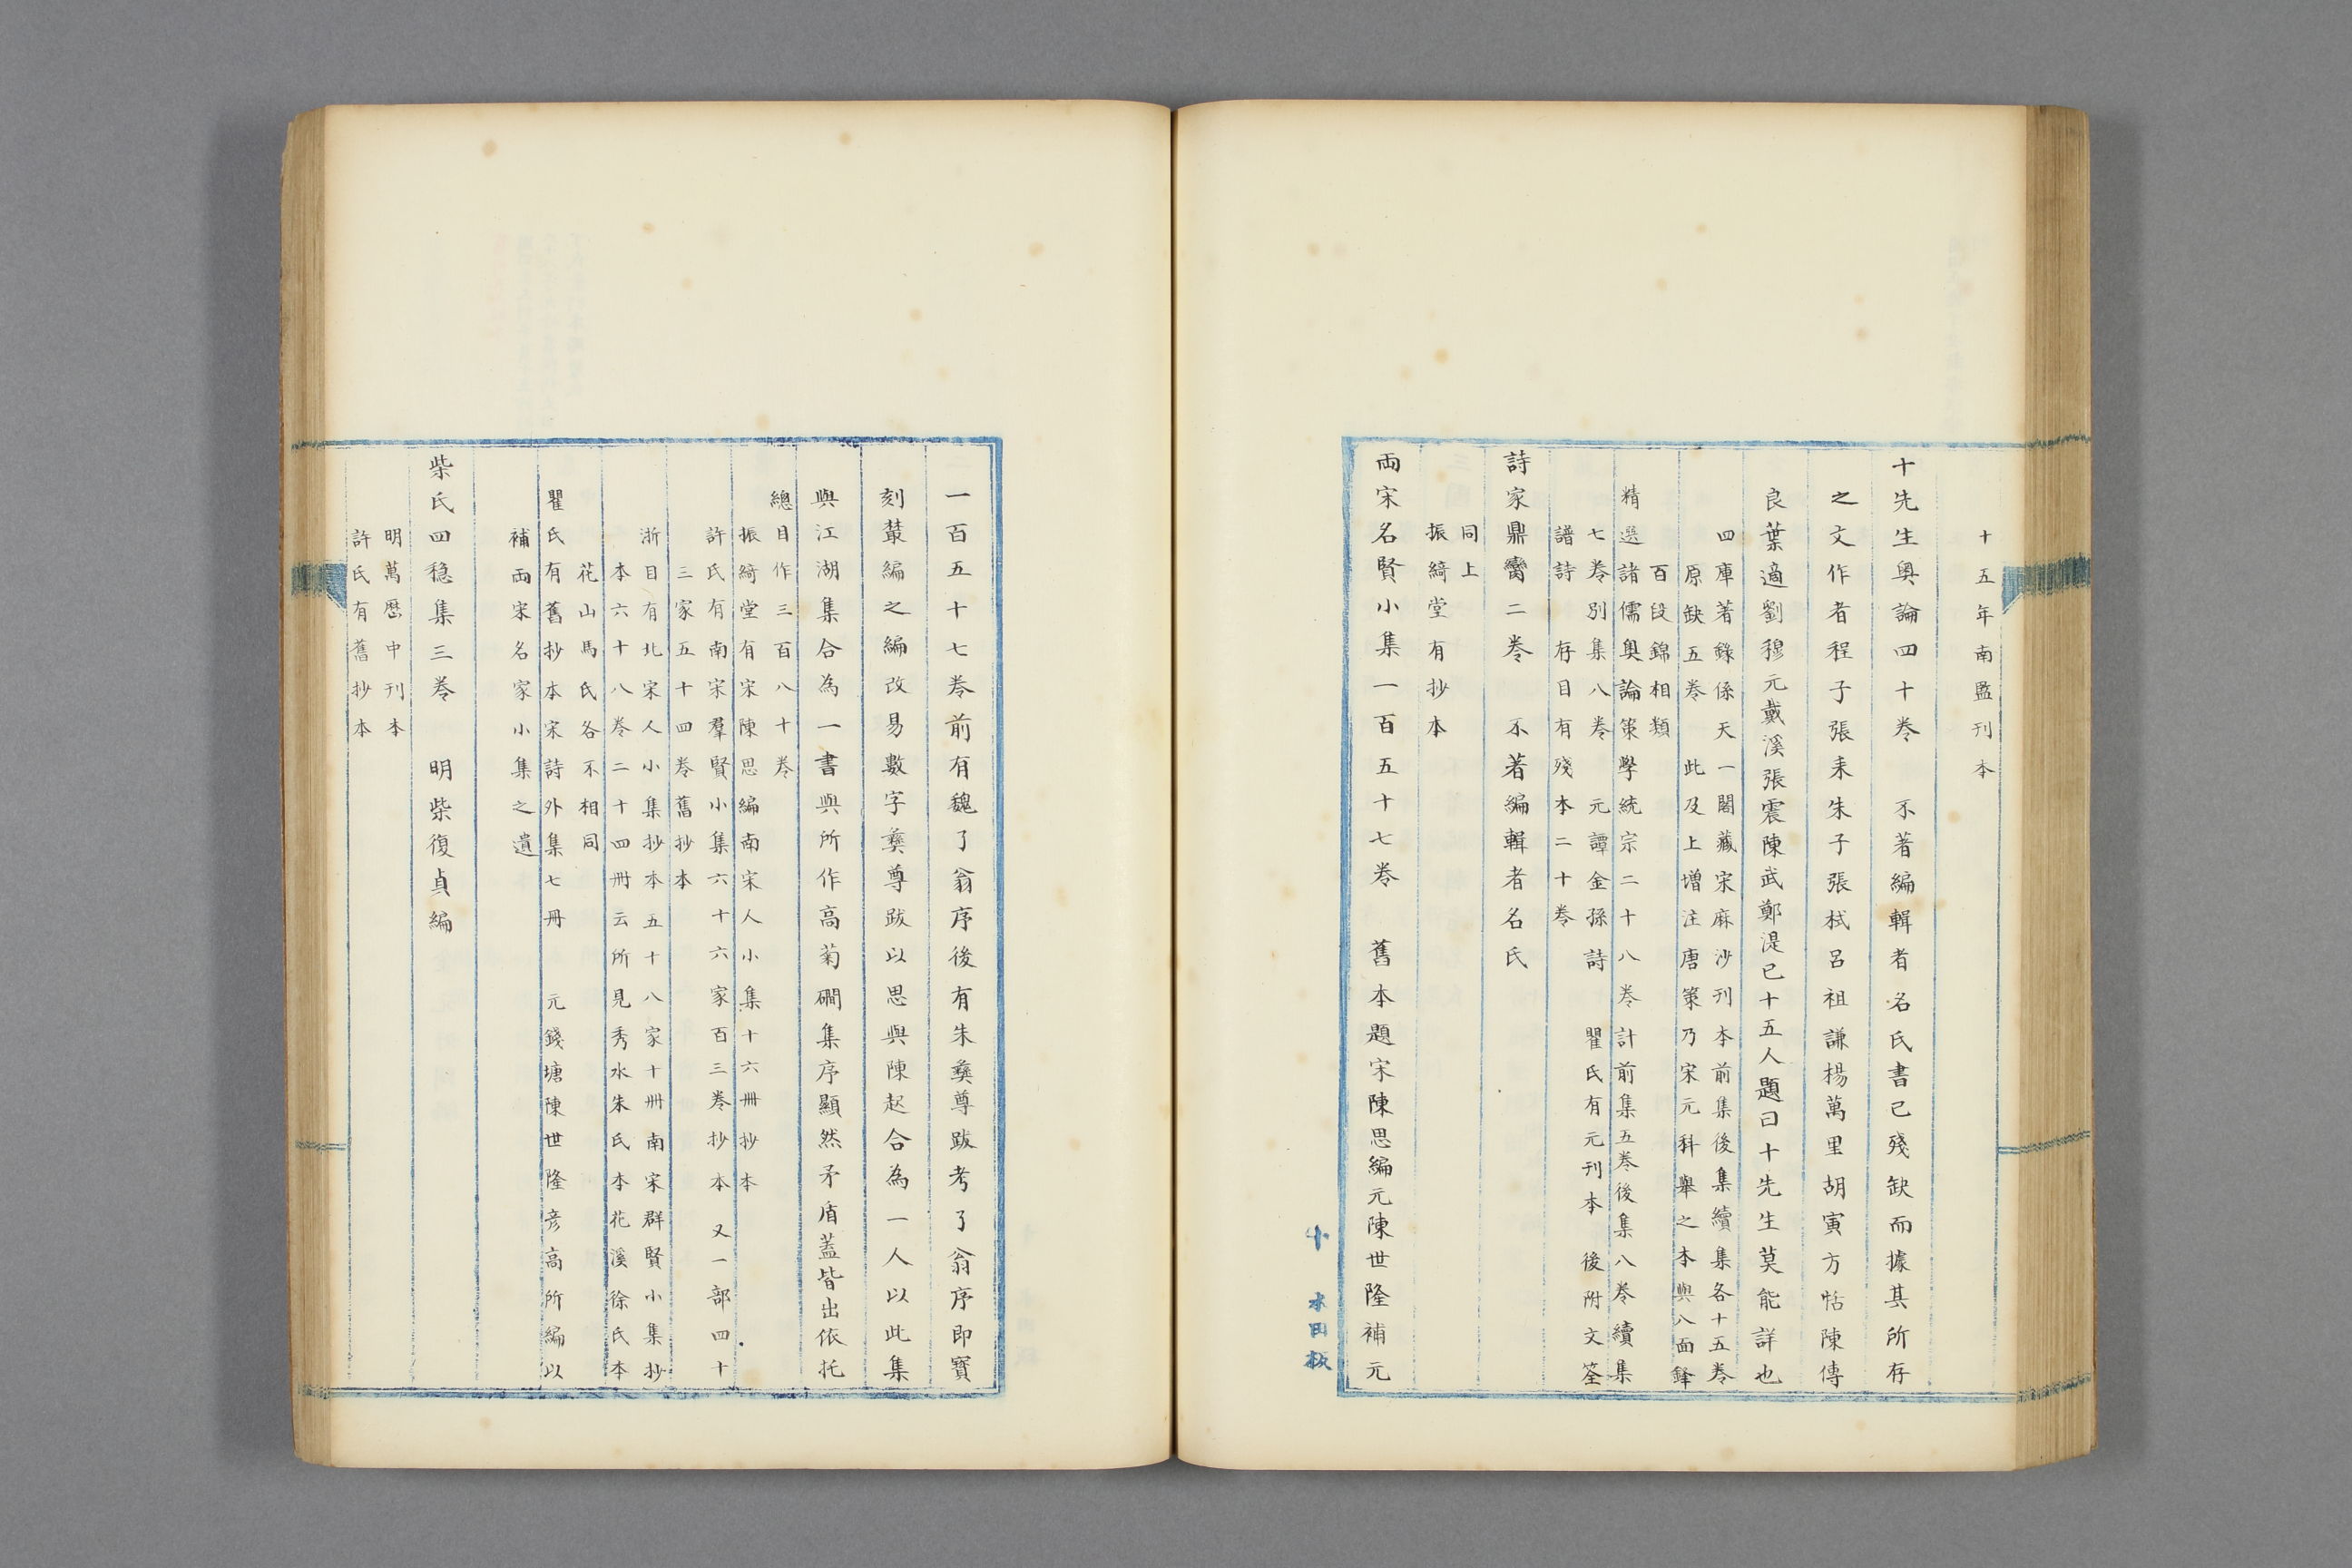 十五年南監刊本
十先生奥論四十卷　不著編輯者名氏書已殘缺而據其所存
之文作者程子張耒朱子張栻呂祖謙楊萬里胡寅方恬陳傅
良葉適劉穆元戴溪張震陳武鄭湜已十五人題曰十先生莫能詳也
四庫著錄係天一閣藏宋麻沙刊本前集後集續集各十五卷
原缺五卷　此及上增注唐策乃宋元科舉之本與八面鋒
百段錦相類
精選諸儒奥論策學統宗二十八卷計前集五卷後集八卷續集
七卷別集八卷　元譚金孫詩　瞿氏有元刊本　後附文筌
譜詩　存目有殘本二十卷
詩家鼎臠二卷　不著編輯者名氏
同上
振綺堂有抄本
兩宋名賢小集一百五十七卷　舊本題宋陳思編元陳世隆補元
十　本田板
一百五十七卷前有魏了翁序後有朱彝尊跋考了翁序即寶
刻叢編之編改易數字彝尊跋以思與陳起合為一人以此集
與江湖集合為一書與所作高菊磵集序顯然矛盾蓋皆出依托
總目作三百八十卷
振綺堂有宋陳思編南宋人小集十六冊抄本
許氏有南宋羣賢小集六十六家百三卷抄本　又一部四十
三家五十四卷舊抄本
浙目有北宋人小集抄本五十八家十冊南宋群賢小集抄
本六十八卷二十四冊云所見秀水朱氏本花溪徐氏本
花山馬氏各不相同
瞿氏有舊抄本宋詩外集七冊　元錢塘陳世隆彦高所編以
補兩宋名家小集之遺
柴氏四穏集三卷　明柴復貞編
明萬歷中刊本
許氏有舊抄本